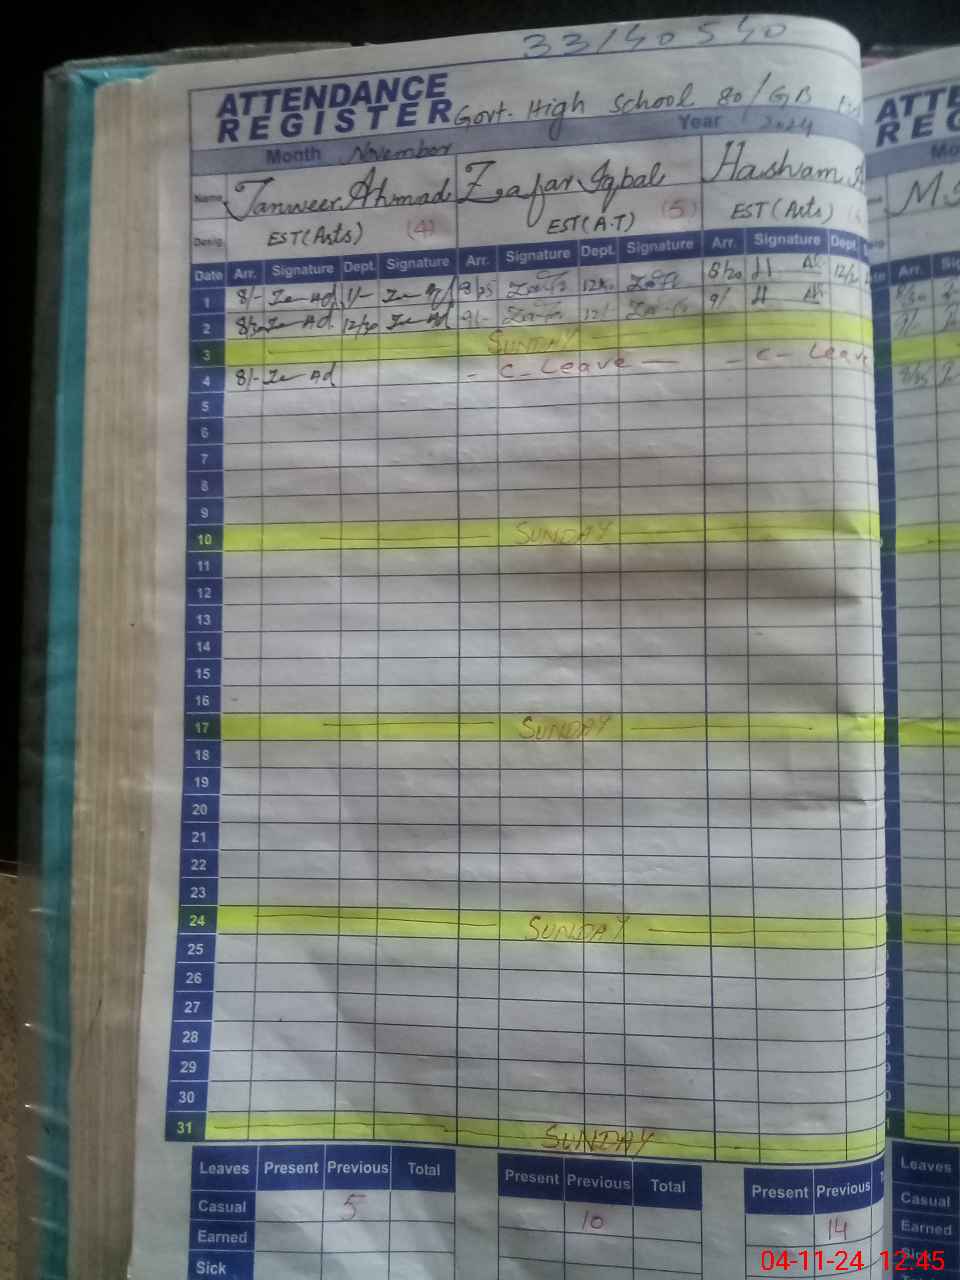 33140540
ATTENDANCE
REGISTER Govt. High School 80/GB
Month November Year 2024
Name Tanweer Ahmad Zafar Iqbal Hashram
Desig. EST(Arts) (4) EST(A.T) (5) EST(Arts)
Date Arr. Signature Dept. Signature Arr. Signature Dept. Signature Arr. Signature Dept.
1 8/- 1/- 8/25 8/20 12/30
2 8/30 12/30 9/- 12/- 9/
3 SUNDAY
4 8/- - C-Leave - - C-Leave
5
6
7
8
9
10 SUNDAY
11
12
13
14
15
16
17 SUNDAY
18
19
20
21
22
23
24 SUNDAY
25
26
27
28
29
30
31 SUNDAY
Leaves Present Previous Total Present Previous Total Present Previous
Casual 5 10 14
Earned
Sick
ATTE
REG
Mo
M.
Arr. Si
Leaves
Casual
Earned
04-11-24 12:45